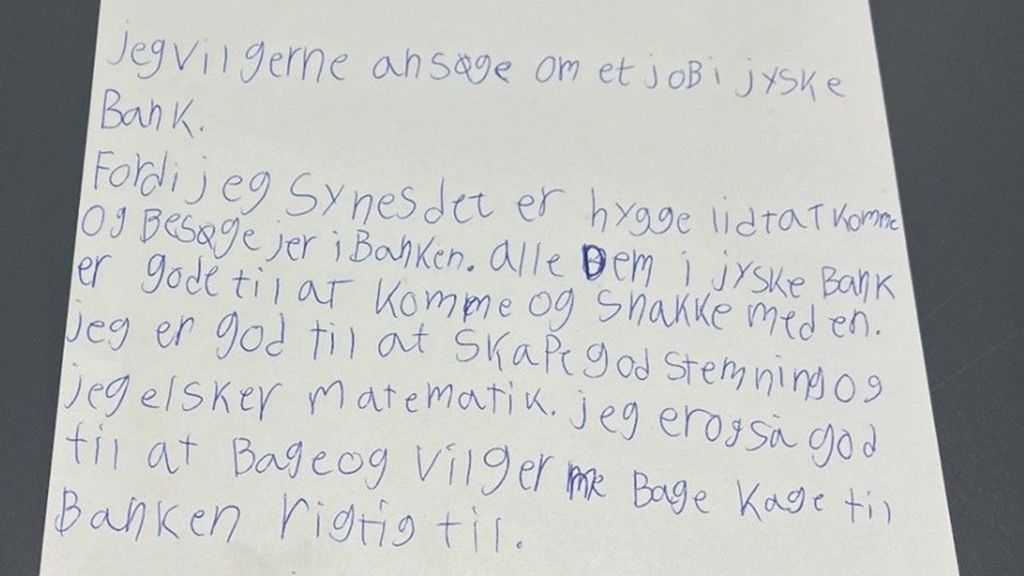 jeg vil gerne ansøge om et joB i jyske
Bank.
Fordi jeg Synes det er hygge lidt at komme
Og Besøge jer i Banken. alle Dem i jyske Bank
er gode til at Komme og Snakke med en.
jeg er god til at Skape god stemning og
jeg elsker matematik. jeg er også god
til at Bage og vil gerne Bage Kage til
Banken rigtig til.